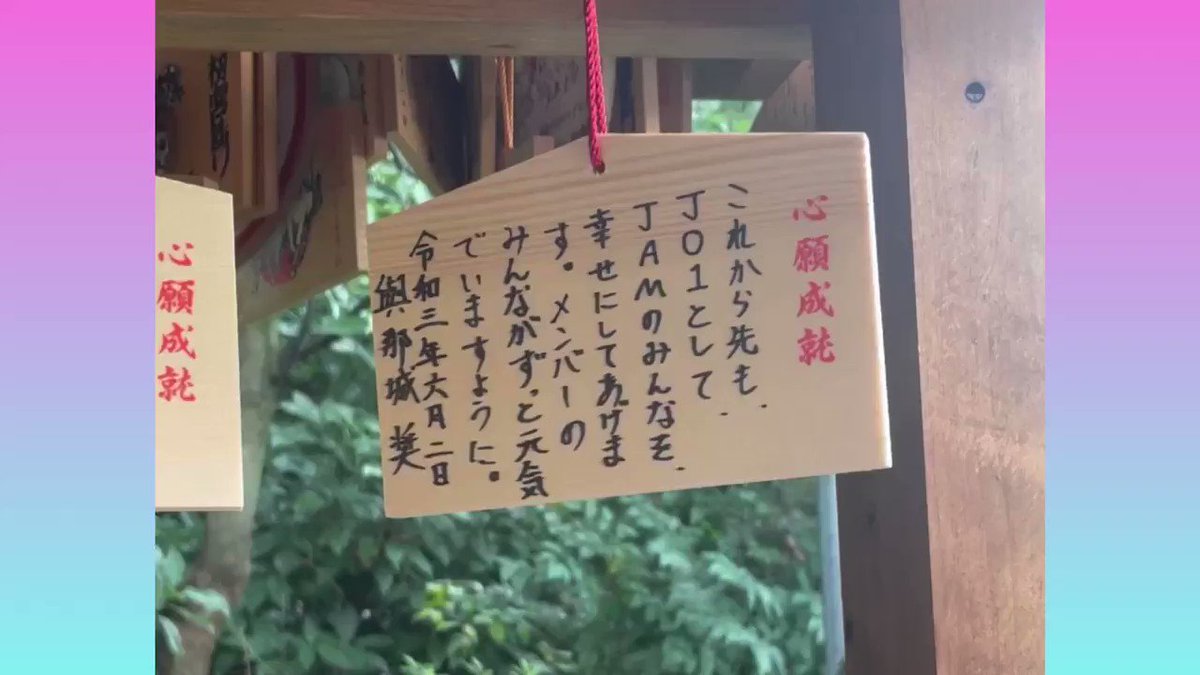 心願成就
これから先も、
JO1として、
JAMのみんなを、
幸せにしてあげま
す。メンバーの
みんながずっと元気
でいますように。
令和三年六月二日
與那城 奨
心願成就